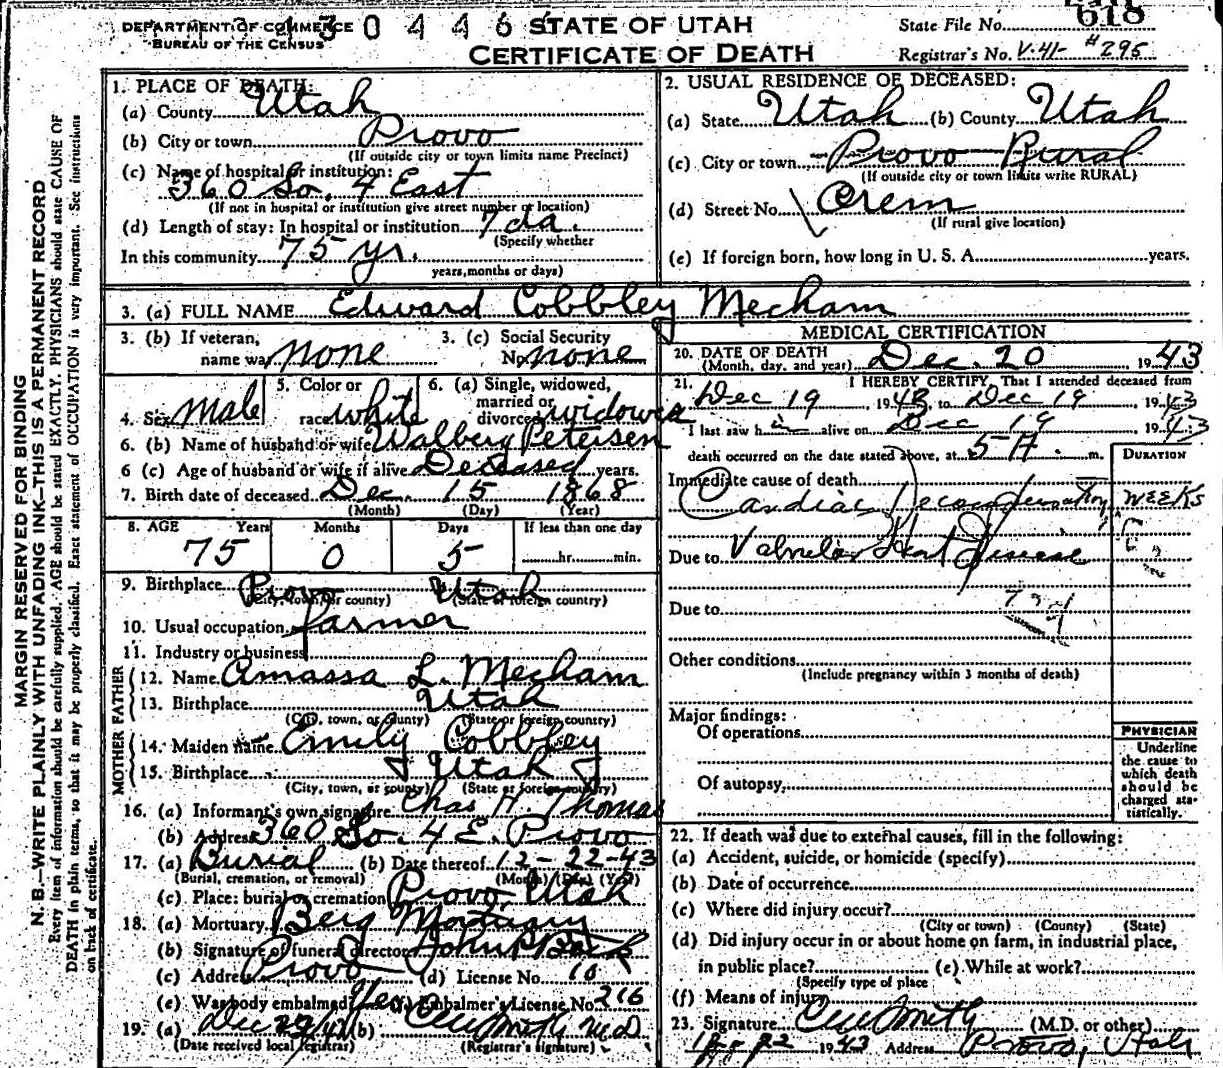 DEPARTMENT OF COMMERCE
BUREAU OF THE CENSUS
3 0 4 4 6
STATE OF UTAH
CERTIFICATE OF DEATH
State File No. 618
Registrar's No. V-41- #295
MARGIN RESERVED FOR BINDING
N. B.—WRITE PLAINLY WITH UNFADING INK—THIS IS A PERMANENT RECORD
Every item of information should be carefully supplied. AGE should be stated EXACTLY. PHYSICIANS should state CAUSE OF
DEATH in plain terms, so that it may be properly classified. Exact statement of OCCUPATION is very important. See instructions
on back of certificate.
1. PLACE OF DEATH:
(a) County Utah
(b) City or town Provo
(If outside city or town limits name Precinct)
(c) Name of hospital or institution:
360 So. 4 East
(If not in hospital or institution give street number or location)
(d) Length of stay: In hospital or institution 7 da.
(Specify whether
In this community 75 yr.
years, months or days)
2. USUAL RESIDENCE OF DECEASED:
(a) State Utah (b) County Utah
(c) City or town Provo Rural
(If outside city or town limits write RURAL)
(d) Street No. Orem
(If rural give location)
(e) If foreign born, how long in U. S. A. years.
3. (a) FULL NAME Edward Cobbley Mecham
3. (b) If veteran,
name war none
3. (c) Social Security
No. none
4. Sex Male
5. Color or
race white
6. (a) Single, widowed,
married or
divorced widowed
6. (b) Name of husband or wife Walberg Petersen
6 (c) Age of husband or wife if alive Deceased years.
7. Birth date of deceased Dec. 15 1868
(Month) (Day) (Year)
8. AGE Years Months Days If less than one day
75 0 5 hr. min.
9. Birthplace Provo Utah
(City, town, or county) (State or foreign country)
10. Usual occupation farmer
11. Industry or business
FATHER
12. Name Amassa L. Mecham
13. Birthplace Utah
(City, town, or county) (State or foreign country)
MOTHER
14. Maiden name Emily Cobbley
15. Birthplace Utah
(City, town, or county) (State or foreign country)
16. (a) Informant's own signature Chas H. Thomas
(b) Address 360 So. 4 E. Provo
17. (a) Burial (b) Date thereof 12-22-43
(Burial, cremation, or removal) (Month) (Day) (Year)
(c) Place: burial or cremation Provo, Utah
18. (a) Mortuary Berg Mortuary
(b) Signature of funeral director John P Berg
(c) Address Provo (d) License No. 10
(e) Was body embalmed? Yes (f) Embalmer's License No. 216
19. (a) Dec (b) M.D.
(Date received local registrar) (Registrar's signature)
MEDICAL CERTIFICATION
20. DATE OF DEATH
(Month, day, and year) Dec. 20 1943
21. I HEREBY CERTIFY, That I attended deceased from
Dec 19, 1943, to Dec 19, 1943
I last saw him alive on Dec 19, 1943
death occurred on the date stated above, at 5 A. m.
DURATION
Immediate cause of death
Cardiac Decompensation WEEKS
Due to Valvular Heart disease
Due to
Other conditions
(Include pregnancy within 3 months of death)
Major findings:
Of operations
Of autopsy
PHYSICIAN
Underline
the cause to
which death
should be
charged sta-
tistically.
22. If death was due to external causes, fill in the following:
(a) Accident, suicide, or homicide (specify)
(b) Date of occurrence
(c) Where did injury occur?
(City or town) (County) (State)
(d) Did injury occur in or about home on farm, in industrial place,
in public place? (e) While at work?
(Specify type of place
(f) Means of injury
23. Signature Smith (M.D. or other)
12-22 1943 Address Provo, Utah